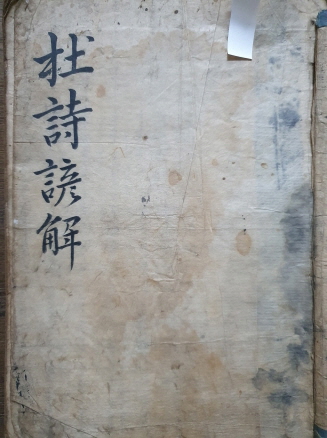 杜詩諺解